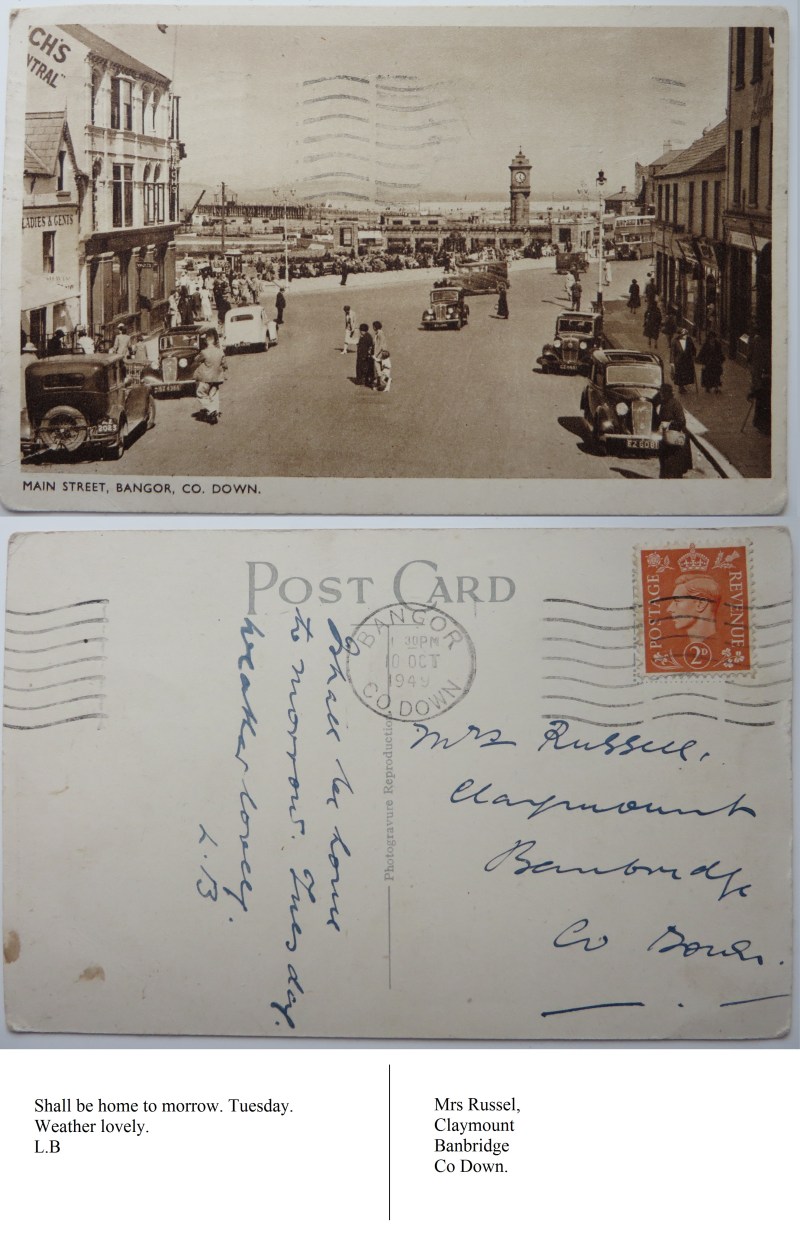 CH'S
NTRAL"
LADIES & GENTS
EZ 6081
MAIN STREET, BANGOR, CO. DOWN.
POST CARD
BANGOR
30PM
10 OCT
1949
CO. DOWN
POSTAGE
REVENUE
2D
Photogravure Reproduction
Shall be home
to morrow. Tuesday.
Weather lovely.
L.B
Mrs Russell,
Claymount
Banbridge
Co Down.
Shall be home to morrow. Tuesday.
Weather lovely.
L.B
Mrs Russel,
Claymount
Banbridge
Co Down.